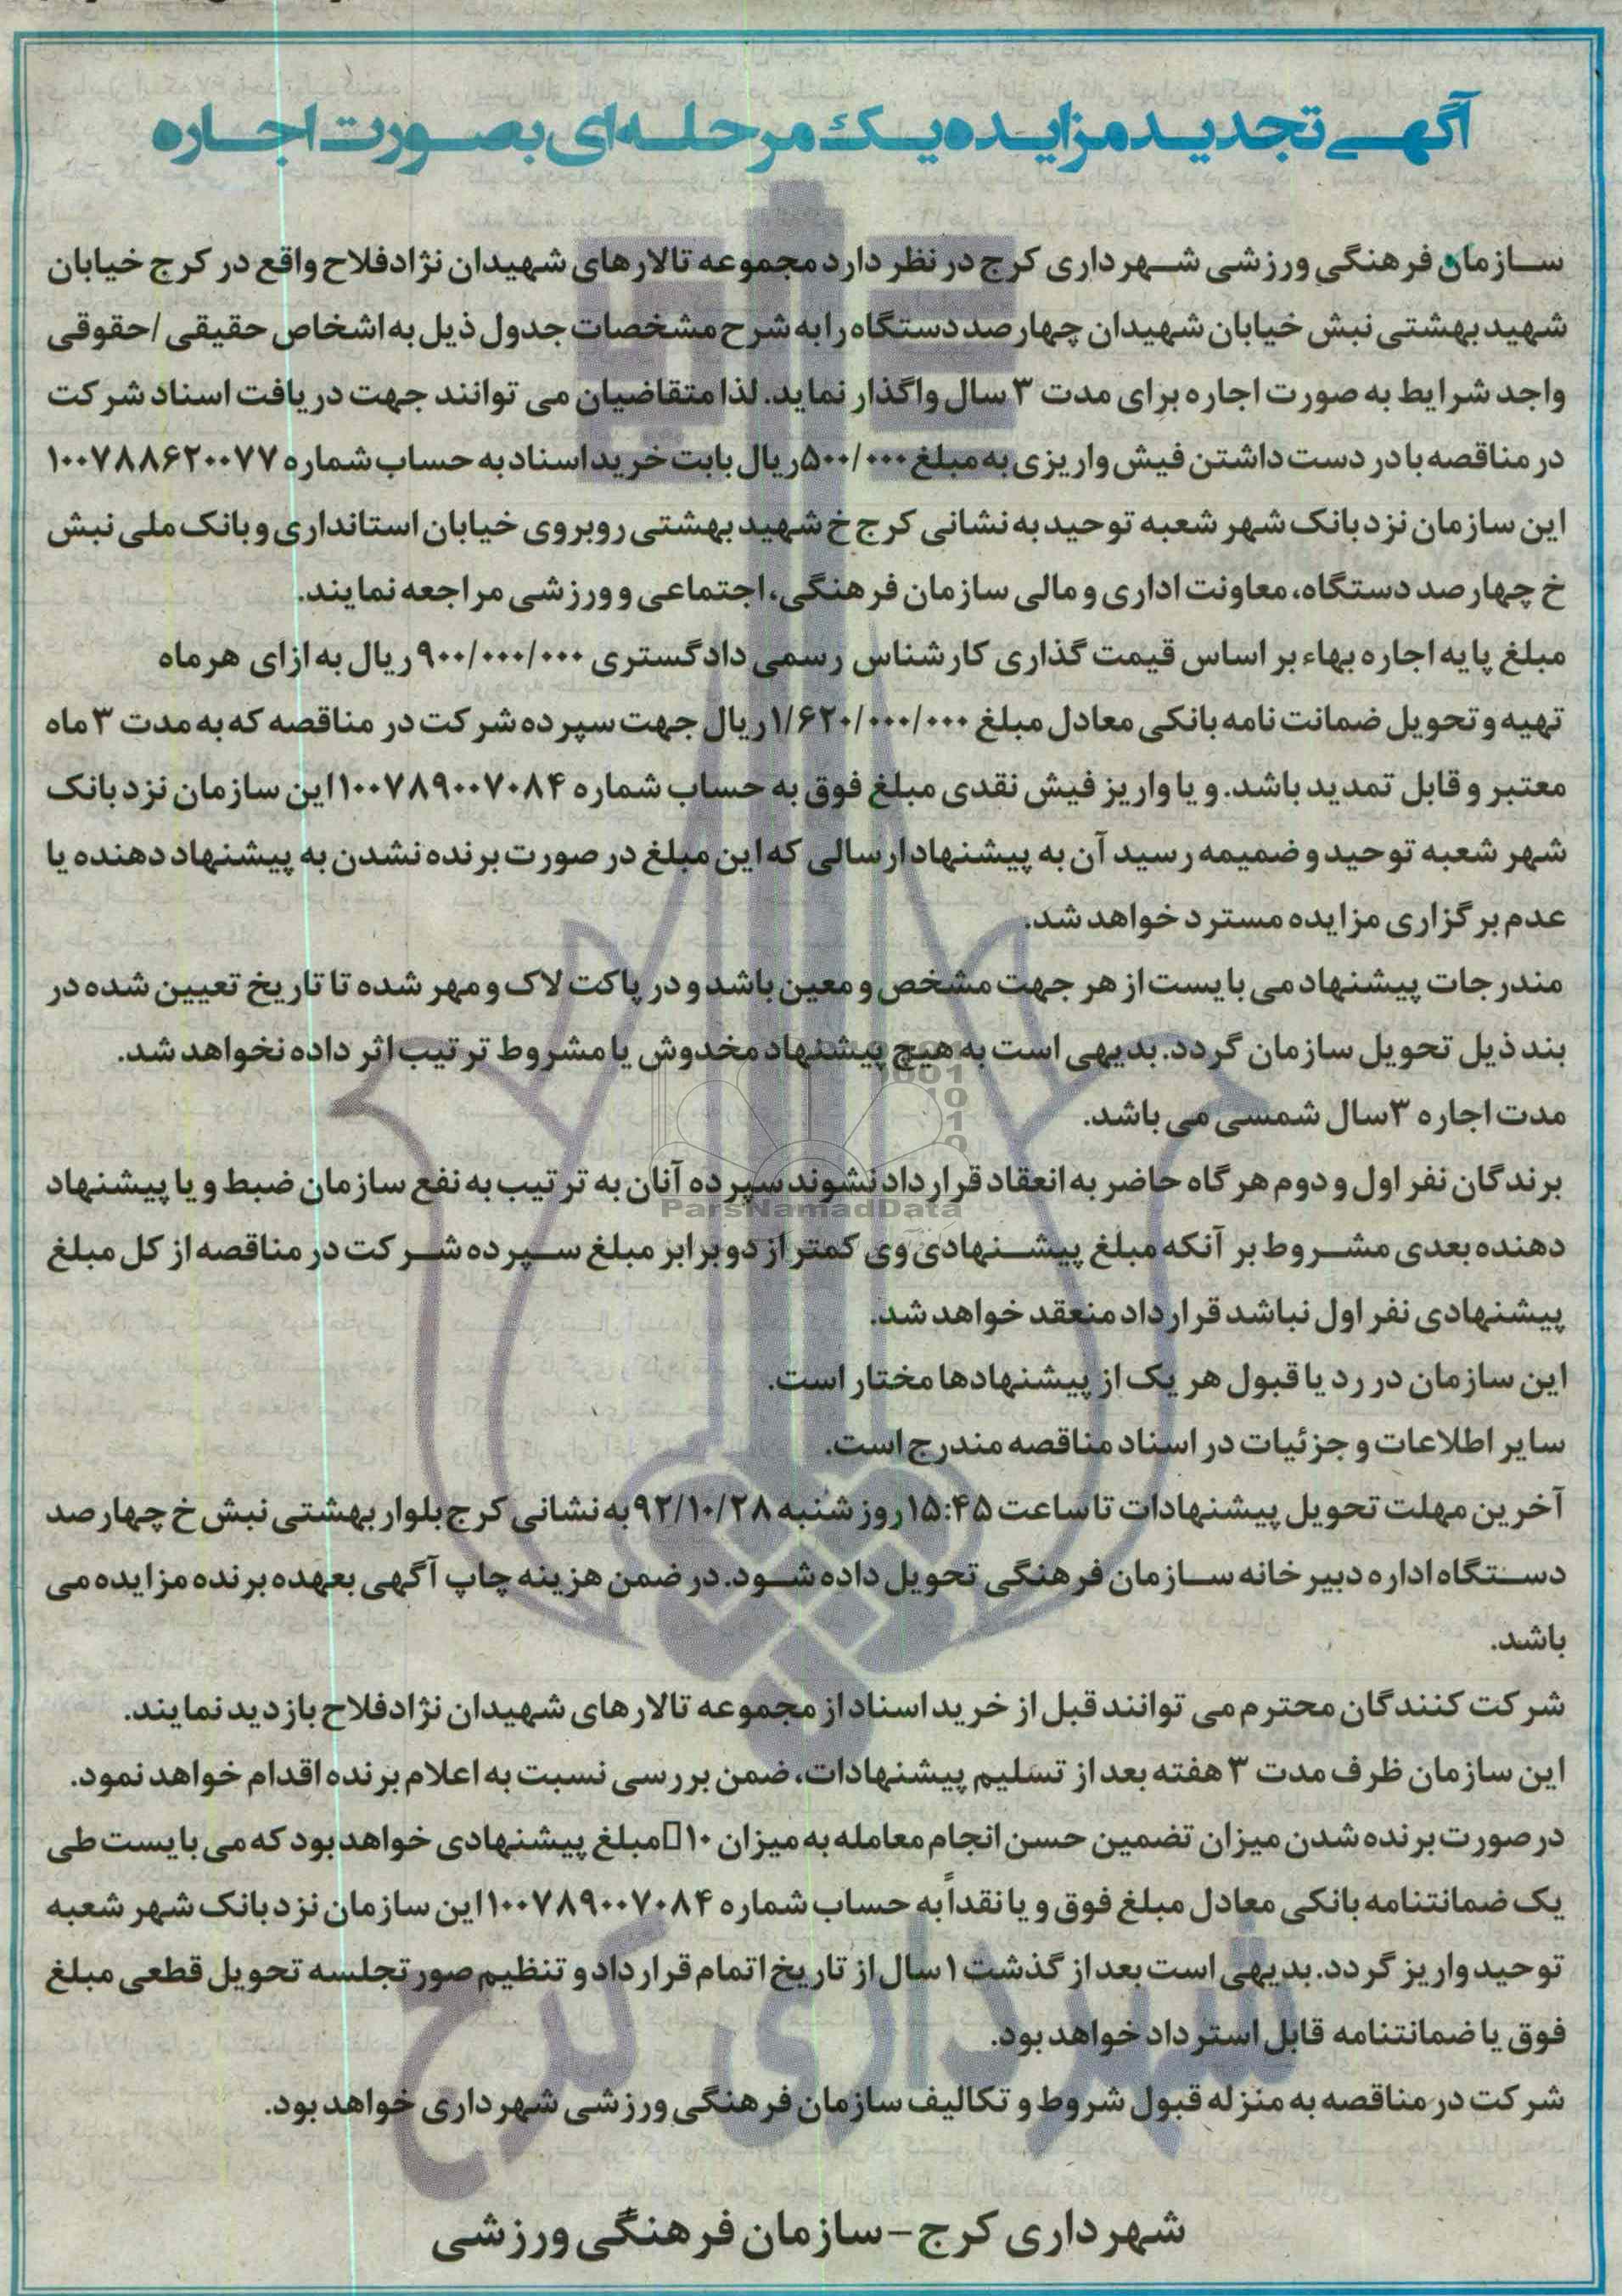 آگهی تجدید مزایده یک مرحله‌ای بصورت اجاره
سازمان فرهنگی ورزشی شهرداری کرج در نظر دارد مجموعه تالارهای شهیدان نژادفلاح واقع در کرج خیابان
شهید بهشتی نبش خیابان شهیدان چهارصد دستگاه را به شرح مشخصات جدول ذیل به اشخاص حقیقی /حقوقی
واجد شرایط به صورت اجاره برای مدت ۳ سال واگذار نماید. لذا متقاضیان می توانند جهت دریافت اسناد شرکت
در مناقصه با در دست داشتن فیش واریزی به مبلغ ۵۰۰/۰۰۰ریال بابت خرید اسناد به حساب شماره ۱۰۰۷۸۸۶۲۰۰۷۷
این سازمان نزد بانک شهر شعبه توحید به نشانی کرج خ شهید بهشتی روبروی خیابان استانداری و بانک ملی نبش
خ چهارصد دستگاه، معاونت اداری و مالی سازمان فرهنگی، اجتماعی و ورزشی مراجعه نمایند.
مبلغ پایه اجاره بهاء بر اساس قیمت گذاری کارشناس رسمی دادگستری ۹۰۰/۰۰۰/۰۰۰ریال به ازای هرماه
تهیه و تحویل ضمانت نامه بانکی معادل مبلغ ۱/۶۲۰/۰۰۰/۰۰۰ریال جهت سپرده شرکت در مناقصه که به مدت ۳ ماه
معتبر و قابل تمدید باشد. و یا واریز فیش نقدی مبلغ فوق به حساب شماره ۱۰۰۷۸۹۰۰۷۰۸۴این سازمان نزد بانک
شهر شعبه توحید و ضمیمه رسید آن به پیشنهاد ارسالی که این مبلغ در صورت برنده نشدن به پیشنهاد دهنده یا
عدم برگزاری مزایده مسترد خواهد شد.
مندرجات پیشنهاد می بایست از هر جهت مشخص و معین باشد و در پاکت لاک و مهر شده تا تاریخ تعیین شده در
بند ذیل تحویل سازمان گردد. بدیهی است به هیچ پیشنهاد مخدوش یا مشروط ترتیب اثر داده نخواهد شد.
مدت اجاره ۳سال شمسی می باشد.
برندگان نفر اول و دوم هرگاه حاضر به انعقاد قرارداد نشوند سپرده آنان به ترتیب به نفع سازمان ضبط و یا پیشنهاد
ParsNamadData
دهنده بعدی مشروط بر آنکه مبلغ پیشنهادی وی کمتر از دو برابر مبلغ سپرده شرکت در مناقصه از کل مبلغ
پیشنهادی نفر اول نباشد قرارداد منعقد خواهد شد.
این سازمان در رد یا قبول هر یک از پیشنهادها مختار است.
سایر اطلاعات و جزئیات در اسناد مناقصه مندرج است.
آخرین مهلت تحویل پیشنهادات تا ساعت ۱۵:۴۵روز شنبه ۹۲/۱۰/۲۸به نشانی کرج بلوار بهشتی نبش خ چهارصد
دستگاه اداره دبیرخانه سازمان فرهنگی تحویل داده شود. در ضمن هزینه چاپ آگهی بعهده برنده مزایده می
باشد.
شرکت کنندگان محترم می توانند قبل از خرید اسناد از مجموعه تالارهای شهیدان نژادفلاح بازدید نمایند.
این سازمان ظرف مدت ۳ هفته بعد از تسلیم پیشنهادات، ضمن بررسی نسبت به اعلام برنده اقدام خواهد نمود.
در صورت برنده شدن میزان تضمین حسن انجام معامله به میزان ۱۰▯مبلغ پیشنهادی خواهد بود که می بایست طی
یک ضمانتنامه بانکی معادل مبلغ فوق و یا نقداً به حساب شماره ۱۰۰۷۸۹۰۰۷۰۸۴این سازمان نزد بانک شهر شعبه
توحید واریز گردد. بدیهی است بعد از گذشت ۱سال از تاریخ اتمام قرارداد و تنظیم صورتجلسه تحویل قطعی مبلغ
فوق یا ضمانتنامه قابل استرداد خواهد بود.
شرکت در مناقصه به منزله قبول شروط و تکالیف سازمان فرهنگی ورزشی شهرداری خواهد بود.
شهرداری کرج
شهرداری کرج -سازمان فرهنگی ورزشی